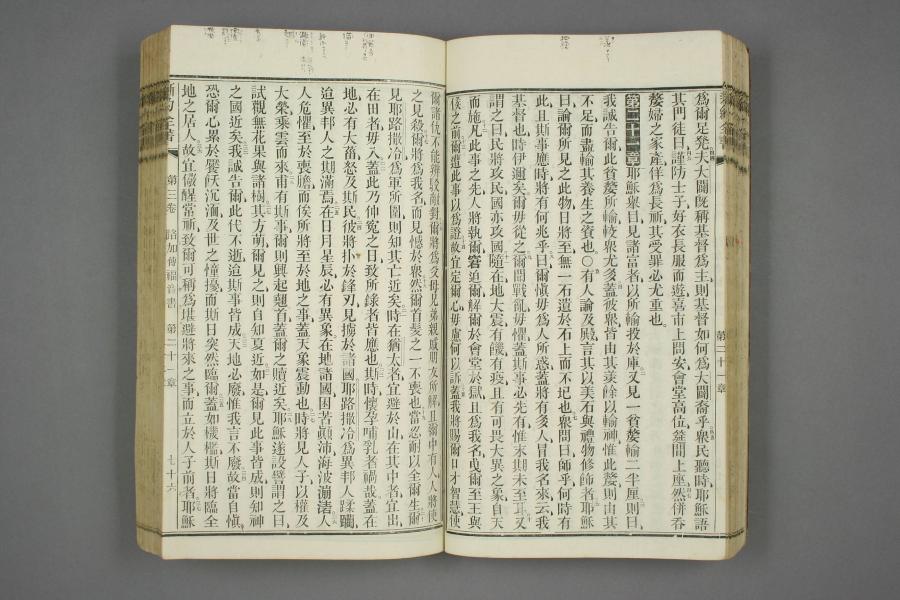 爲爾足凳大闢旣稱基督爲主則基督如何爲大闢裔乎衆民聽時耶穌語
其門徒曰謹防士子好衣長服而遊喜市上問安會堂高位筵間上座然併吞
嫠婦之家產佯爲長祈其受罪必尤重也
第二十一章耶穌舉目見諸富者以所輸投於庫又見一貧嫠輸二半厘則曰
我誠告爾此貧嫠所輸較衆尤多蓋彼衆皆由其羨餘以輸神惟此嫠則由其
不足而盡輸其養生之資也○有人論及殿言其以美石與禮物修飾者耶穌
曰論爾所見之此物日將至無一石遺於石上而不圮也衆問曰師乎何時有
此且斯事應時將有何兆乎曰爾愼毋爲人所惑蓋將有多人冒我名來云我
基督也時伊邇矣爾毋從之爾聞戰亂毋懼蓋斯事必先有惟末期未至耳又
謂之曰民將攻民國亦攻國隨在地大震有饑有疫且有可畏大異之象自天
而施凡此事之先人將執爾窘迫爾解爾於會堂於獄且爲我名曳爾至王與
侯之前爾遭此事以爲證故宜定爾心毋慮何以訴蓋我將賜爾口才智慧使
爾諸仇不能辨駁敵對爾將爲父母兄弟親戚朋友所解且爾中有人人將使
之見殺爾將爲我名而見憾於衆然爾首髮之一不喪也當忍耐以全爾生爾
見耶路撒冷爲軍所圍則知其亡近矣時在猶太者宜避於山在其中者宜出
在田者毋入蓋此乃伸寃之日致所錄者皆應也斯時懷孕哺乳者禍哉蓋在
地必有大菑怒及斯民彼將仆於鋒刃見擄於諸國耶路撒冷爲異邦人蹂躪
迨異邦人之期滿焉在日月星辰必有異象在地諸國困苦顚沛海波漰湱人
人危懼至於喪膽而俟所將至於地之事蓋天象震動也時將見人子以權及
大榮乘雲而來甫有斯事爾則興起翹首蓋爾之贖近矣耶穌遂設譬謂之曰
試觀無花果與諸樹其方萌爾見之則自知夏近如是爾見此事皆成則知神
之國近矣我誠告爾此代不逝迨斯事皆成天地必廢惟我言不廢故當自愼
恐爾心累於饜飫沉湎及世之憧擾而斯日突然臨爾蓋如機檻斯日將臨全
地之居人故宜儆醒常祈致爾可稱爲堪避將來之事而立於人子前者耶穌
第二十一章
第三卷 路加傳福音書 第二十一章 七十六